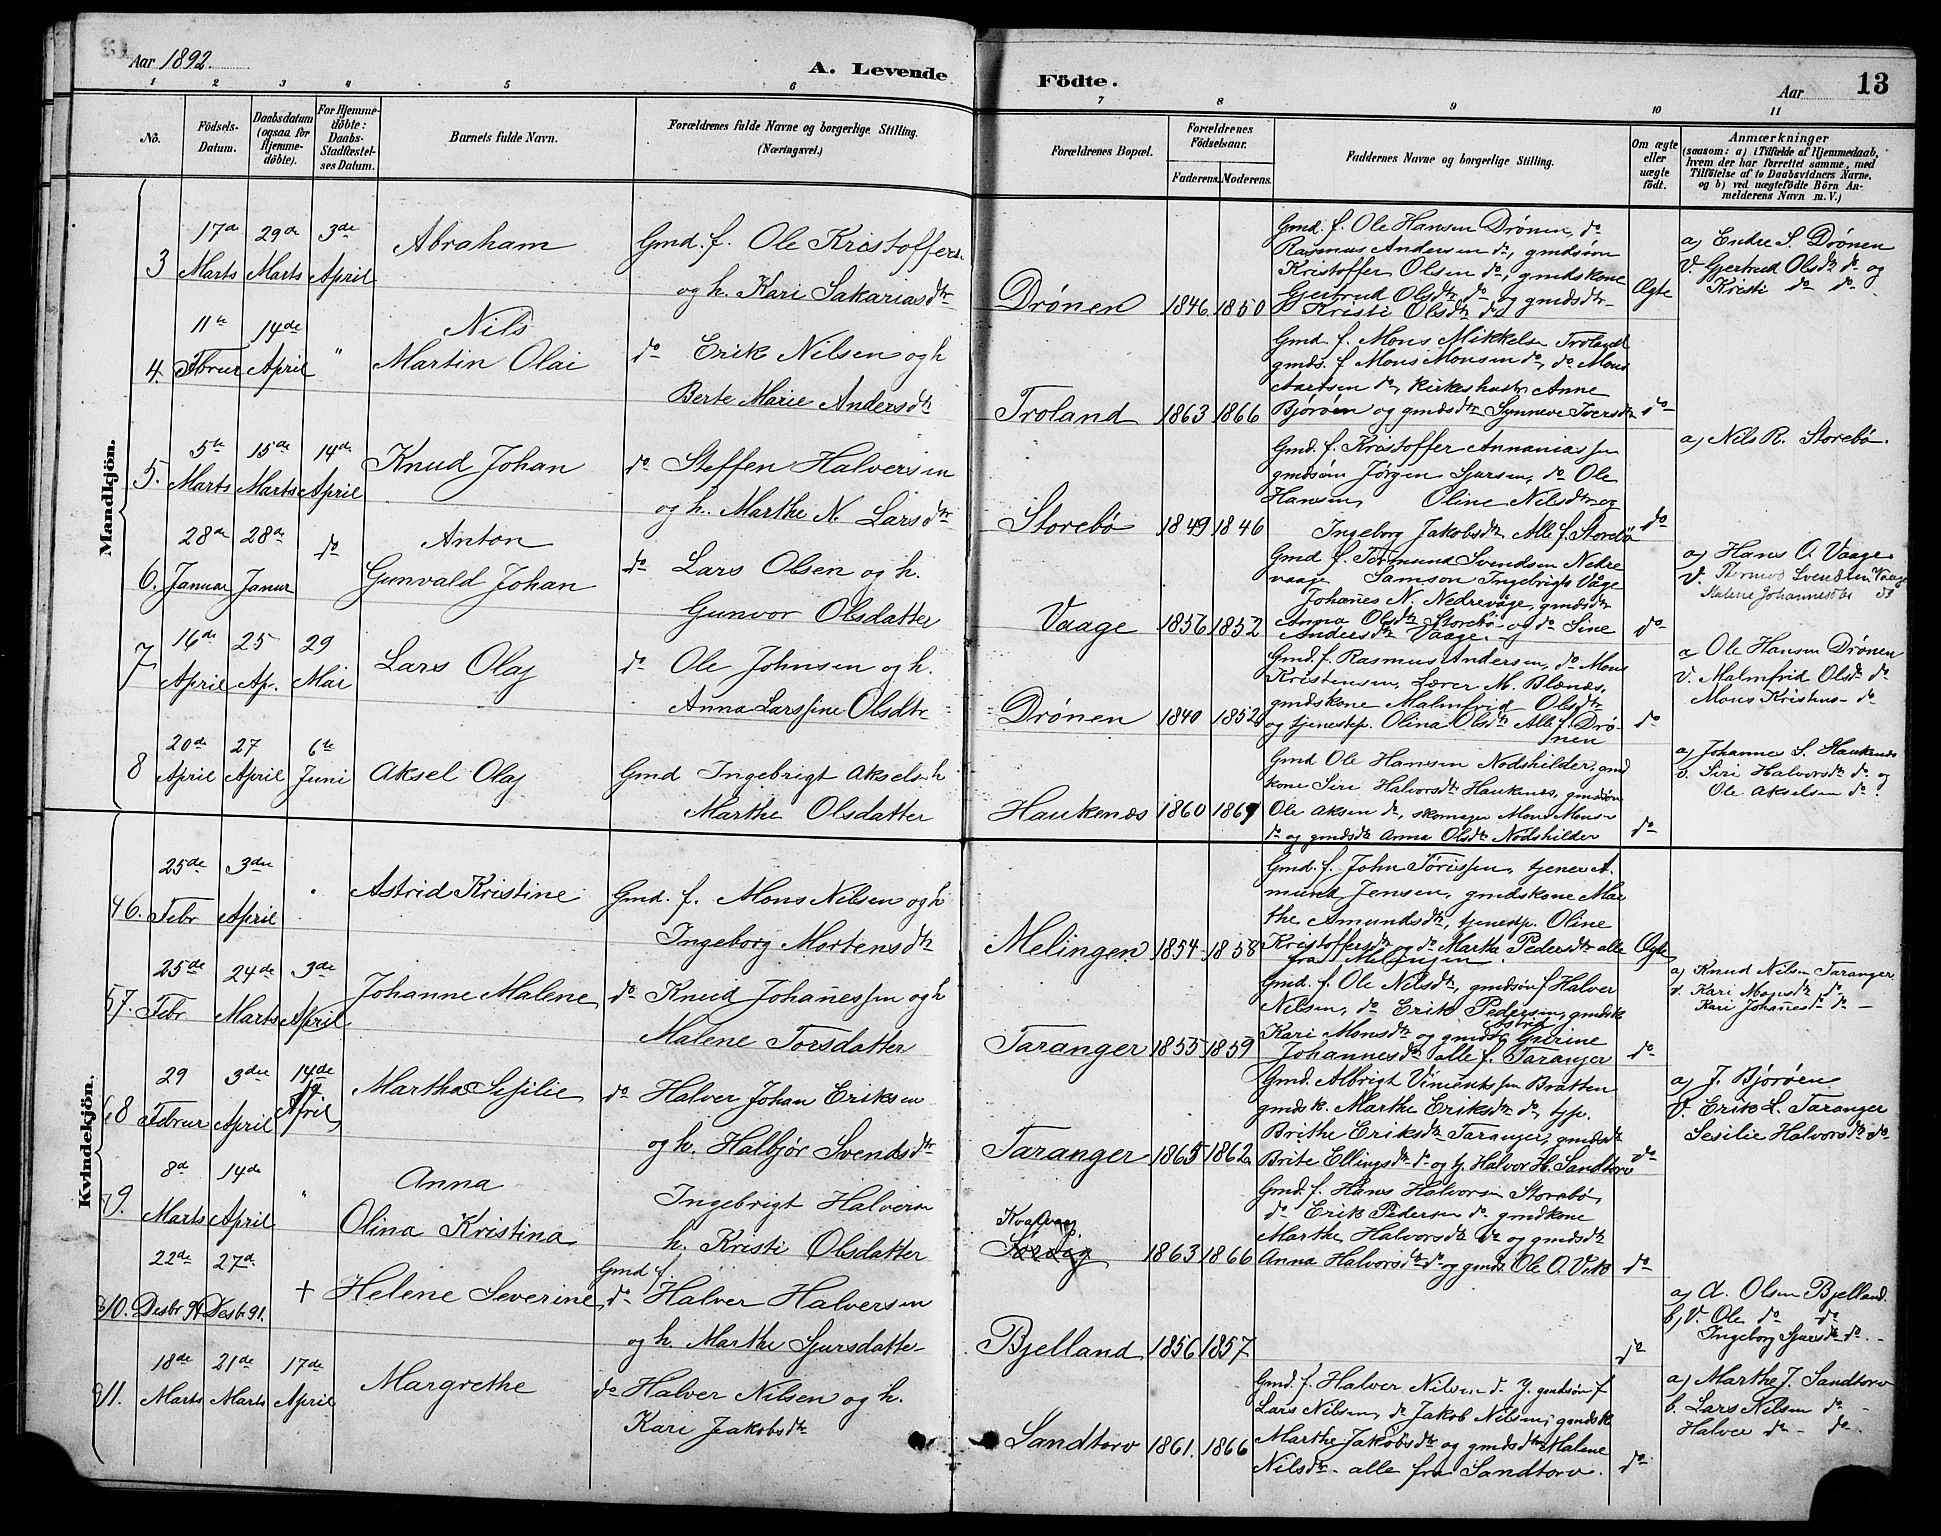 Aar 1892.
A. Levende
Födte.
Aar
13
1 2 3 4 5 6 7 8 9 10 11
No.
Födsels-Datum.
Daabsdatum (ogsaa for Hjemme-döbte).
For Hjemme-döbte: Daabs-Stadfæstel-ses Datum.
Barnets fulde Navn.
Forældrenes fulde Navne og borgerlige Stilling.
(Næringsvei.)
Forældrenes Bopæl.
Forældrenes Födselsaar.
Faderens. Moderens.
Faddernes Navne og borgerlige Stilling.
Om ægte eller uægte födt.
Anmærkninger
(saasom: a) i Tilfælde af Hjemmedaab,
hvem der har forrettet samme, med
Tilföielse af to Daabsvidners Navne,
og b) ved uægtefödte Börn An-
melderens Navn m. V.)
Mandkjön.
3 17de Marts 29de Marts 3de April
Abraham
Gmd. f. Ole Kristoffers.
og h. Kari Sakariasdtr
Drönen 1846 1850
Gmd. f. Ole Hansen Drönen, do
Rasmus Andersen do, gmdsön
Kristoffer Olsen do, gmdskone
Gjertrud Olsdtr do og gmdsdtr
Kristi Olsdtr do
Ægte
a) Endre S. Drönen
V. Gjertrud Olsdtr do og
Kristi do do
4. 11te Februar 14de April "
Nils
Martin Olai
do Erik Nilsen og h
Berte Marie Andersdtr
Troland 1863 1866
Gmd. f. Mons Mikkelsen Troland
gmds. f Mons Monsen do, do Mons
Aartsen do, Kirkeshustr Anne
Björöen og gmdsdtr Synneve Iversdtr
do
5. 5te Marts 15de Marts 14de April
Knud Johan
do Steffen Halversen
og h. Marthe N. Larsdtr
Storebö 1849 1846
Gmd. f. Kristoffer Annaniassen
gmdsön Jörgen Sjursen, do Ole
Hansen, Oline Nilsdtr og
Ingeborg Jakobsdtr Alle f. Storebö
do
a) Nils R. Storebö.
6. 28de Januar 28de Januar do
Anton
Gunvald Johan
do Lars Olsen og h.
Gunvor Olsdatter
Vaage 1856 1852
Gmd f. Tormund Svendsen Nedre
vaage Samson Ingebrigts Våge
Johanes N. Nedrevåge, gmdsdtr
Anna Olsdtr Storebö og do Sine
Andersdtr Vaage.
do
a) Hans O. Vaage
V. Thermod Svendsen Vaage
Malene Johannesdtr do
7 16de April 25 Ap. 29 Mai
Lars Olaj
do Ole Johnsen og h.
Anna Larssine Olsdtr
Drönen 1840 1852
Gmd. f. Rasmus Andersen, do Mons
Kristensen, Lærer M. Blænes,
gmdskone Malmfrid Olsdtr
og tjenestep. Olina Olsdtr Alle f. Drö-
nen
do
a Ole Hansen Drönen
V. Malmfrid Olsdtr do
Mons Kristens- do
8 20de April 27 April 6te Juni
Aksel Olaj
Gmd Ingebrigt Aksels. h
Marthe Olsdatter
Haukenæs 1860 1869
Gmd Ole Hansen Nodshilder, gmd
kone Siri Halvorsdtr Haukenes, gmdsön
Ole Aksen do, skomager Mons Mons-
do og gmdsdtr Anna Olsdtr Nodshilder
do
a) Johannes S. Haukenæs
v. Siri Halvorsdtr do og
Ole Akselsen do.
Kvindekjön.
46. 25de Febr 3die April
Astrid Kristine
Gmd. f. Mons Nilsen og h
Ingeborg Mortensdtr
Melingen 1854 1858
Gmd. f. John Törissen, tjener A.
mund Jensen, gmdskone Mar
the Amundsdtr, tjenestp. Oline
Kristoffersdtr og do Martha Pedersdtr alle
fra Melingen.
Ægte
57. 25de Febr 24de Marts 3de April
Johanne Malene
do Knud Johanessen og h
Malene Torsdatter
Taranger 1855 1859
Gmd. f. Ole Nilsdtr, gmdsön f Halver
Nilsen, do Erik Pedersen, gmdsk
Kari Monsdtr og gmdstr Gurine
Johannesdtr alle f. Taranger
do
a) Knud Nilsen Taranger
v. Kari Monsdtr do
Kari Johanesdtr do
68 29 Februar 3die April 14de April
Martha Sesilie
do Halver Johan Eriksen
og h. Halbjör Svendsdtr
Taranger 1865 1862
Gmd. Albrigt Vincentssen Bratten
gmdsk. Marthe Eriksdtr do, tjp.
Brithe Eriksdtr Taranger, gmdsdtr
Brite Ellingsdtr do og tj. Halvor H. Sandtorv
do
a) J. Björöen
V. Erik L. Taranger
Sesilie Halvorsdtr do
79. 8de Marts 14de April "
Anna
Olina Kristina
Ingebrigt Halversn
h. Kristi Olsdatter
Kvalvaag 1863 1866
Gmd. f. Hans Halvorsen Storebö
do Erik Pedersen do gmdkone
Marthe Halvorsdtr do og gmdsdtr
Anna Halvorsdtr do og gmds. Ole O. Vik
do
810. 22de Desbr 91 27de Desb. 91. +
Helene Severine
Gmd f.
do Halver Halversen
og h. Marthe Sjursdatter
Bjelland 1856 1857
do
a) A. Olsen Bjelland.
b) V. Ole do do
Ingeborg Sjursdtr do. -
911. 18de Marts 21de Marts 17de April
Margrethe
do Halver Nilsen og h.
Kari Jakobsdtr
Sandtorv 1861. 1866
Gmd. f. Halver Nilsen do Y. gmdsön f
Lars Nilsen, do Jakob Nilsen, gmdsk
Marthe Jakobsdtr og gmdsdtr Malene
Nilsdtr - alle fra Sandtorv.
do
a) Marthe J. Sandtorv
b. Lars Nilsen do -
Halver do - do.